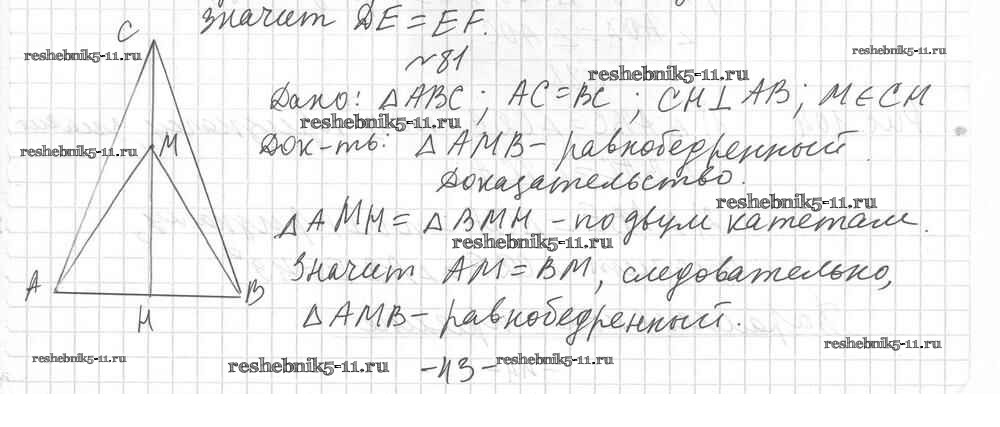 значит DE = EF.
C
reshebnik5-11.ru
№81
reshebnik5-11.ru
reshebnik5-11.ru
Дано: △ABC; AC = BC; CH⊥AB; M∈CH
reshebnik5-11.ru
reshebnik5-11.ru
M
Док-ть: △AMB – равнобедренный.
Доказательство.
reshebnik5-11.ru
△AMH = △BMH – по двум катетам.
reshebnik5-11.ru
Значит AM = BM, следовательно,
A
B
H
△AMB – равнобедренный.
reshebnik5-11.ru
reshebnik5-11.ru
reshebnik5-11.ru
-43-
reshebnik5-11.ru